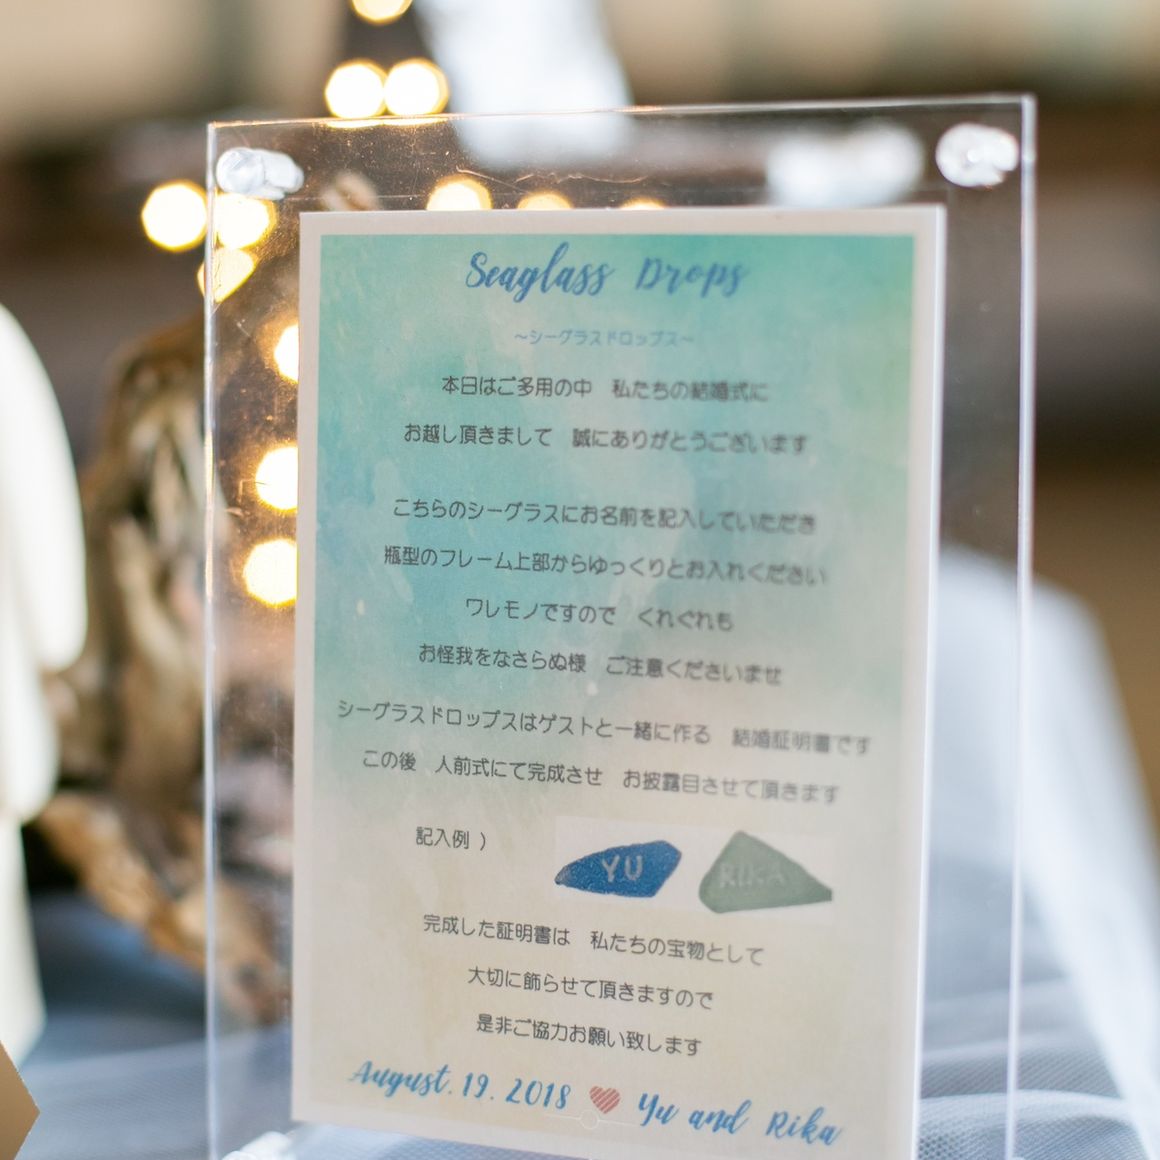 Seaglass Drops
～シーグラスドロップス～
本日はご多用の中 私たちの結婚式に
お越し頂きまして 誠にありがとうございます
こちらのシーグラスにお名前を記入していただき
瓶型のフレーム上部からゆっくりとお入れください
ワレモノですので くれぐれも
お怪我をなさらぬ様 ご注意くださいませ
シーグラスドロップスはゲストと一緒に作る 結婚証明書です
この後 人前式にて完成させ お披露目させて頂きます
記入例 )
YU RIKA
完成した証明書は 私たちの宝物として
大切に飾らせて頂きますので
是非ご協力お願い致します
August. 19. 2018 Yu and Rika